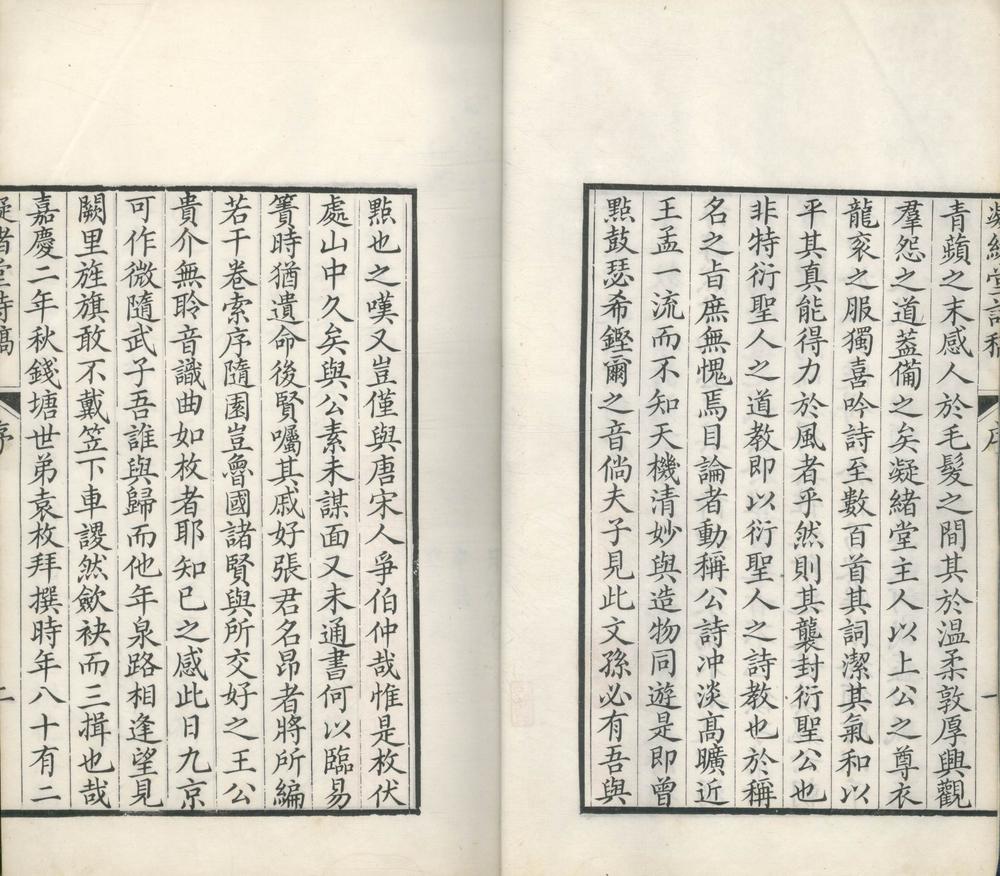 凝緒堂詩稿
序
一
青蘋之末感人於毛髮之間其於温柔敦厚興觀
羣怨之道葢備之矣凝緒堂主人以上公之尊衣
龍衮之服獨喜吟詩至數百首其詞潔其氣和以
平其真能得力於風者乎然則其襲封衍聖公也
非特衍聖人之道教即以衍聖人之詩教也於稱
名之㫖庶無愧焉目論者動稱公詩冲淡髙曠近
王孟一流而不知天機清妙與造物同遊是即曾
點鼓瑟希鏗爾之音倘夫子見此文孫必有吾與
點也之嘆又豈僅與唐宋人爭伯仲哉惟是枚伏
處山中久矣與公素未謀面又未通書何以臨易
簀時猶遺命後賢囑其戚好張君名昂者將所編
若干卷索序隨園豈魯國諸賢與所交好之王公
貴介無聆音識曲如枚者耶知已之感此日九京
可作微隨武子吾誰與歸而他年泉路相逢望見
闕里旌旗敢不戴笠下車謖然斂袂而三揖也哉
嘉慶二年秋錢塘世弟袁枚拜撰時年八十有二
凝緒堂詩稿
序
二